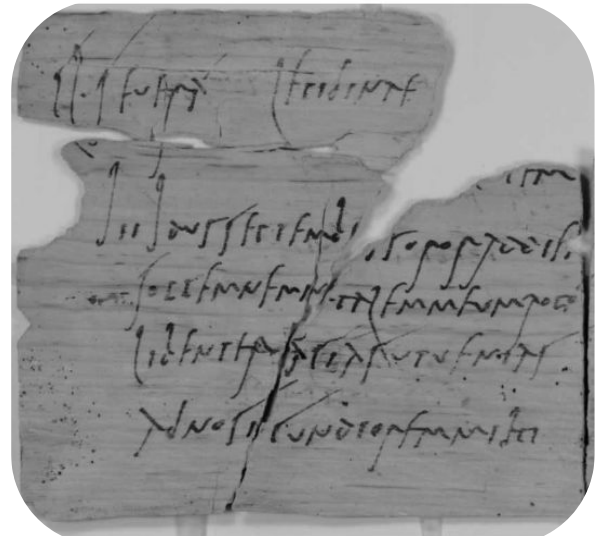 Cl · Seuerá Lepidinae
tem
iii Idus Septembr s soror ad diem
sollemnem natalem meum rogo
libenter faciás ut uenias
ad nos iucundiorem mihi